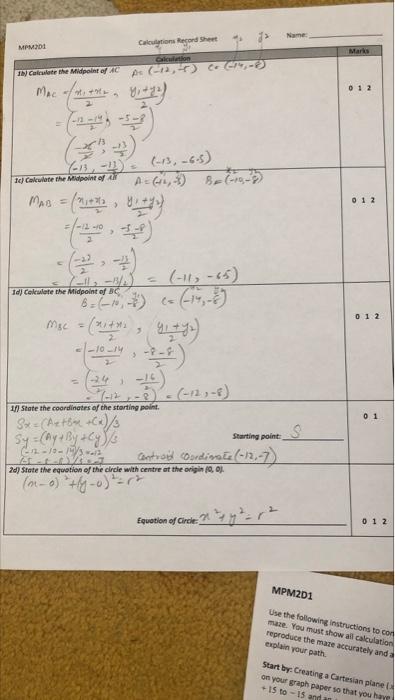 MPM2D1
Calculations Record Sheet
Name:
Calculation
Marks
1b) Calculate the Midpoint of AC A= (-12,-5) C= (-14,-8)
M AC = (x₁+x₂/2 , y₁+y₂/2)
0 1 2
= (-12-14/2 , -5-8/2)
(-26/2 , -13/2)
(-13, -13/2) = (-13, -6.5)
1c) Calculate the Midpoint of AB A=(-12,-5) B=(-10,-8)
M AB = (x₁+x₂/2 , y₁+y₂/2)
0 1 2
= (-12-10/2 , -5-8/2)
= (-22/2 , -13/2)
= (-11, -13/2) = (-11, -6.5)
1d) Calculate the Midpoint of BC
B=(-10,-8) C= (-14,-8)
M BC = (x₁+x₂/2 , y₁+y₂/2)
0 1 2
= (-10-14/2 , -8-8/2)
= (-24/2 , -16/2)
= (-12, -8) = (-12,-8)
1f) State the coordinates of the starting point.
0 1
Sx = (Ax+Bx+Cx)/3
Sy = (Ay+By+Cy)/3
Starting point: S
(-12-10-14)/3=-12
(-5-8-8)/3=-7
Centroid Coordinate (-12,-7)
2d) State the equation of the circle with centre at the origin (0, 0).
(x-0)²+(y-0)²=r²
Equation of Circle: x²+y²=r²
0 1 2
MPM2D1
Use the following instructions to
maze. You must show all calculation
reproduce the maze accurately and
explain your path.
Start by: Creating a Cartesian plane
on your graph paper so that you have
+15 to -15 and